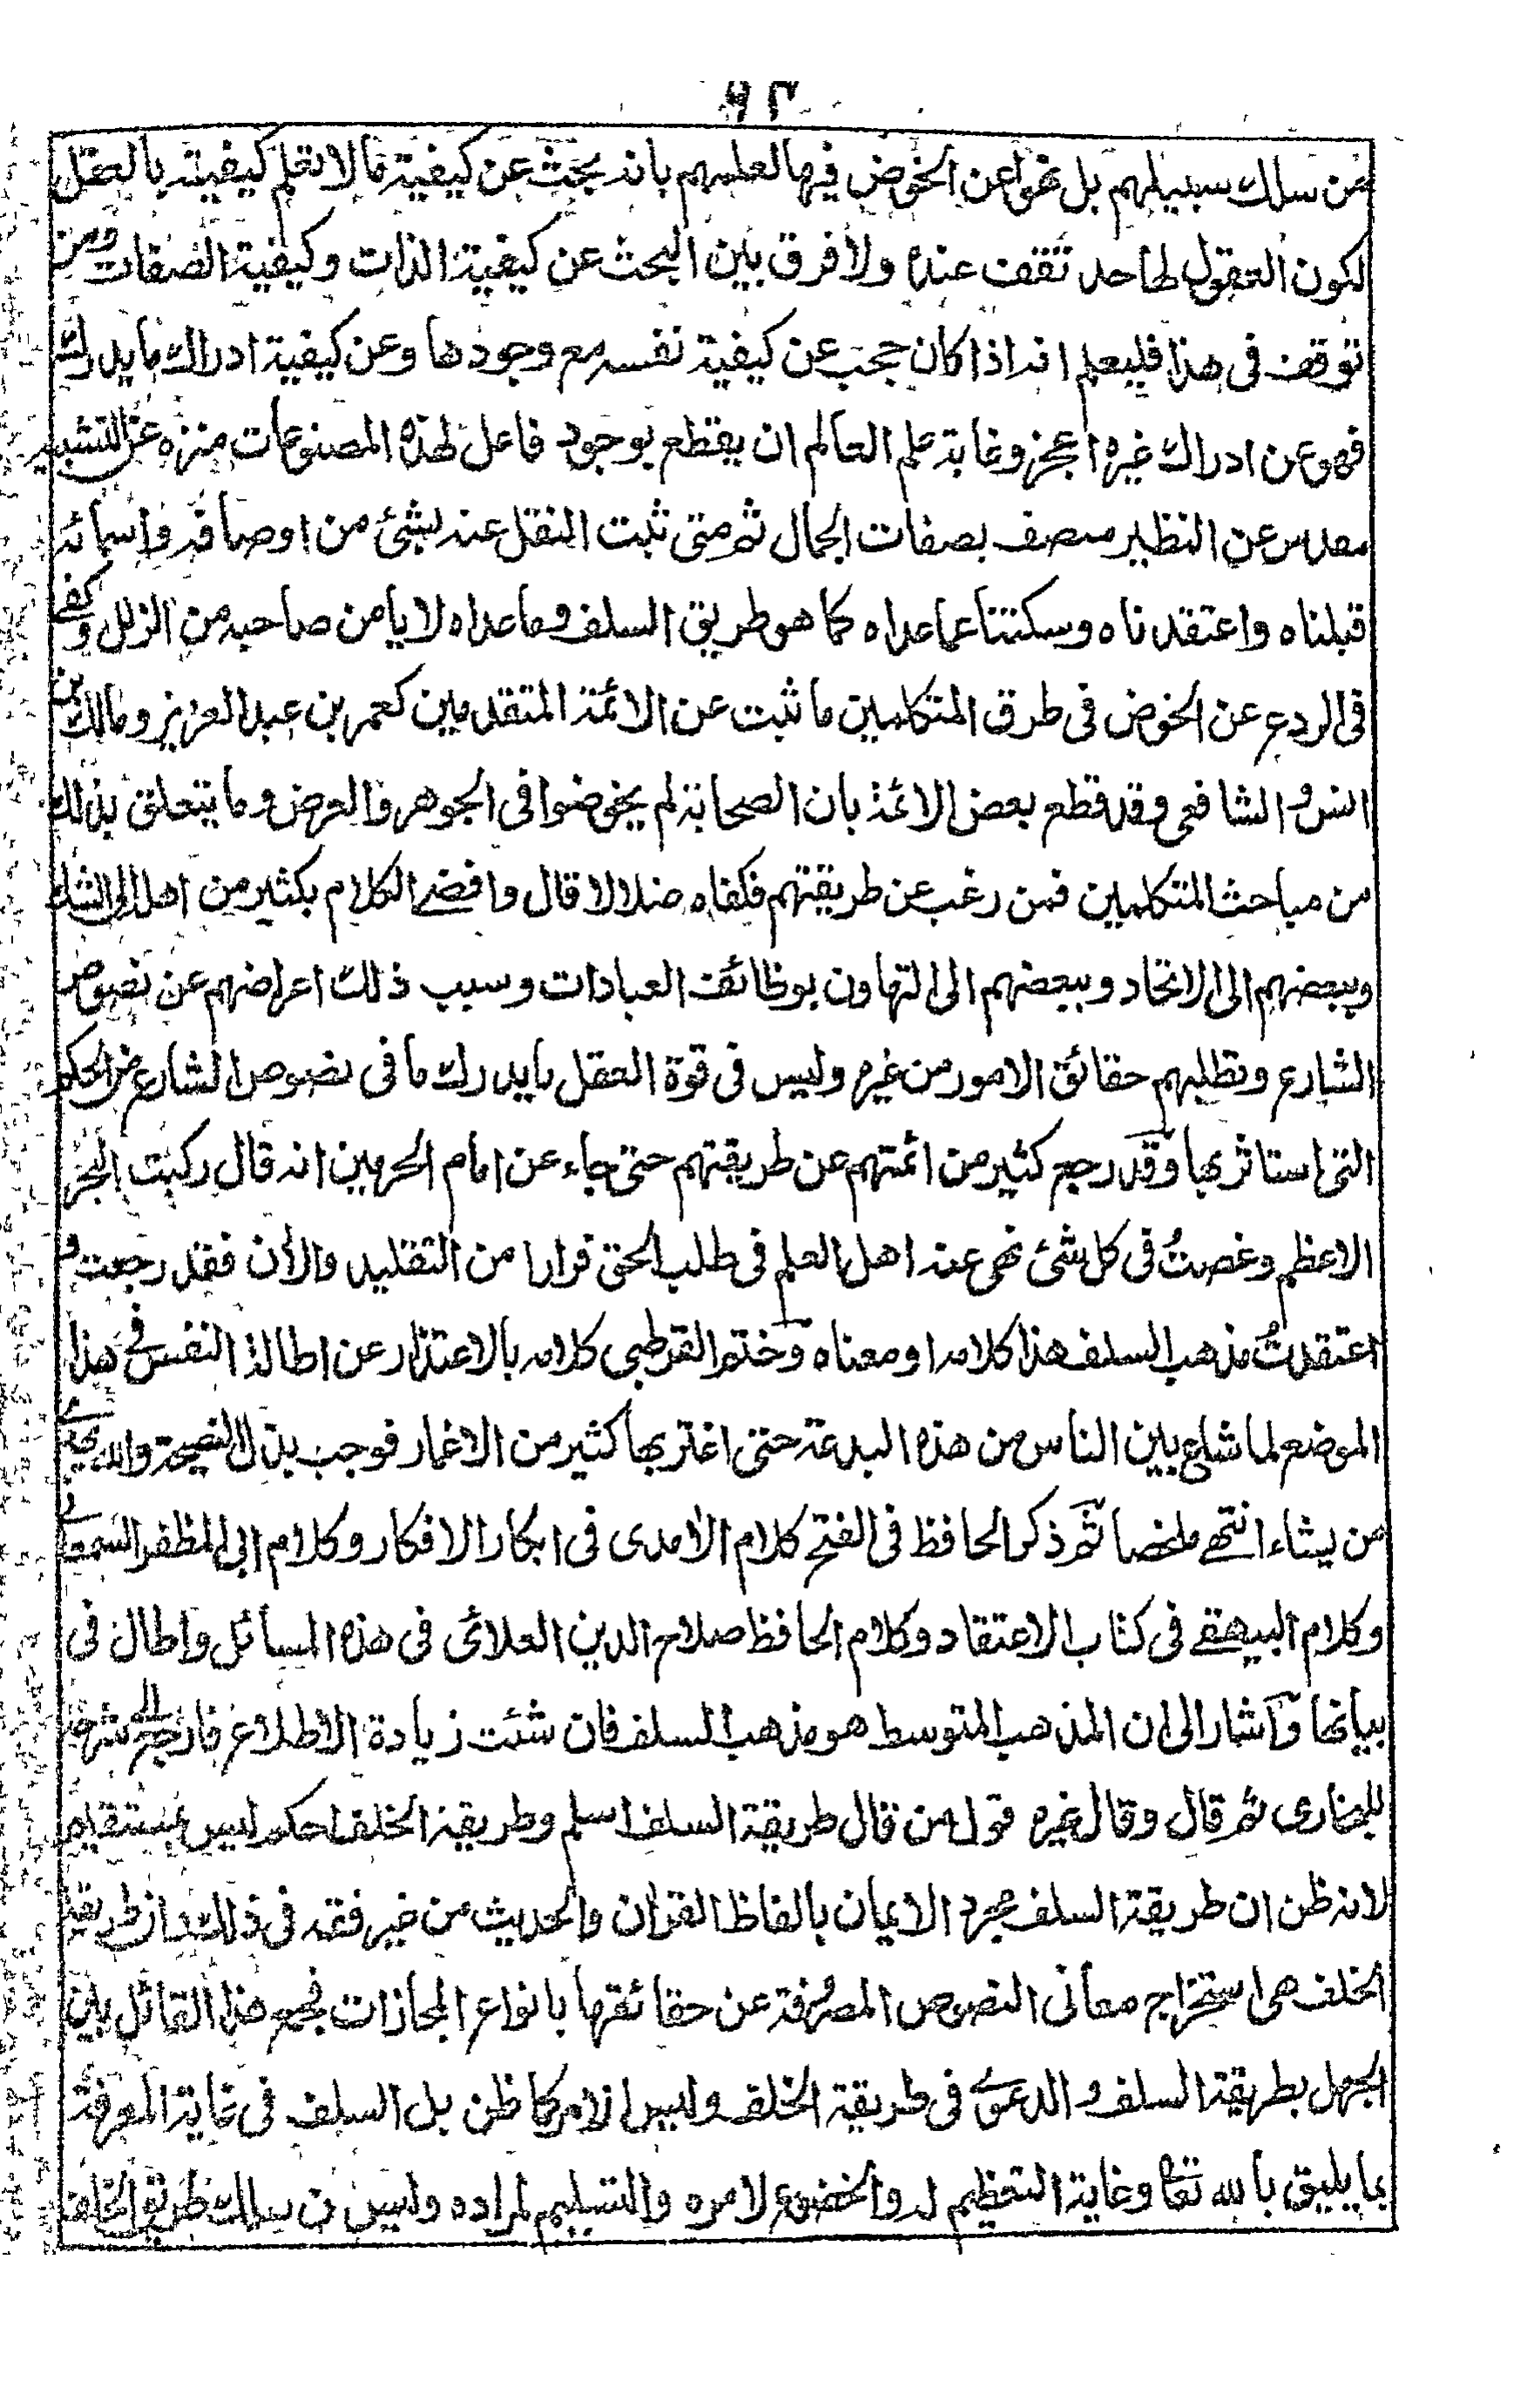 ٩٣
من سلك سبيلهم بل نهوا عن الخوض فيها لعلمهم بانه بحث عن كيفية ما لا تعلم كيفيته بالعقل
لكون العقول لها حد تقف عنده ولا فرق بين البحث عن كيفية الذات وكيفية الصفات ومن
توقف فى هذا فليعلم انه اذا كان حجب عن كيفية نفسه مع وجودها وعن كيفية ادراك ما يدرك
فهو عن ادراك غيره اعجز وغاية علم العالم ان يقطع بوجود فاعل لهذه المصنوعات منزه عن التشبيه
مقدس عن النظير متصف بصفات الجمال ثم متى ثبت النقل عنه بشئ من اوصافه واسمائه
قبلناه واعتقدناه وسكتنا عما عداه كما هو طريق السلف وما عداه لا يامن صاحبه من الزلل وكفى
فى الردع عن الخوض فى طرق المتكلمين ما ثبت عن الائمة المتقدمين كعمر بن عبد العزيز ومالك بن
انس والشافعى وقد قطع بعض الائمة بان الصحابة لم يخوضوا فى الجوهر والعرض وما يتعلق بذلك
من مباحث المتكلمين فمن رغب عن طريقتهم فكفاه ضلالا قال وافضى الكلام بكثير من اهله الى الشك
وببعضهم الى الاتحاد وببعضهم الى التهاون بوظائف العبادات وسبب ذلك اعراضهم عن نصوص
الشارع وتطلبهم حقائق الامور من غيره وليس فى قوة العقل ما يدرك ما فى نصوص الشارع من الحكم
التى استاثر بها وقد رجع كثير من ائمتهم عن طريقتهم حتى جاء عن امام الحرمين انه قال ركبت البحر
الاعظم وغصتُ فى كل شئ نهى عنه اهل العلم فى طلب الحق فرارا من التقليد والأن فقد رجعت و
اعتقدتُ مذهب السلف هذا كلامه او معناه وختم القرطبى كلامه بالاعتذار عن اطالة النفس فى هذا
الموضع لما شاع بين الناس من هذه البدعة حتى اغتر بها كثير من الاغمار فوجب بذل النصيحة والله يهدى
من يشاء انتهى ملخصا ثم ذكر الحافظ فى الفتح كلام الأمدى فى ابكار الافكار وكلام ابى المظفر السمعانى
وكلام البيهقى فى كتاب الاعتقاد وكلام الحافظ صلاح الدين العلائى فى هذه المسائل واطال فى
بيانها واشار الى ان المذهب المتوسط هو مذهب السلف فان شئت زيادة الاطلاع فارجع الى شرحه
للبخارى ثم قال وقال غيره قول من قال طريقة السلف اسلم وطريقة الخلف احكم ليس بمستقيم
لانه ظن ان طريقة السلف مجرد الايمان بالفاظ القرأن والحديث من غير فقه فى ذلك وان طريقة
الخلف هى استخراج معانى النصوص المصروفة عن حقائقها بانواع المجازات فجمع هذا القائل بين
الجهل بطريقة السلف والدعوى فى طريقة الخلف وليس الامر كما ظن بل السلف فى غاية المعرفة
بما يليق بالله تعا وغاية التعظيم له والخضوع لامره والتسليم لمراده وليس من سلك طريق الخلف